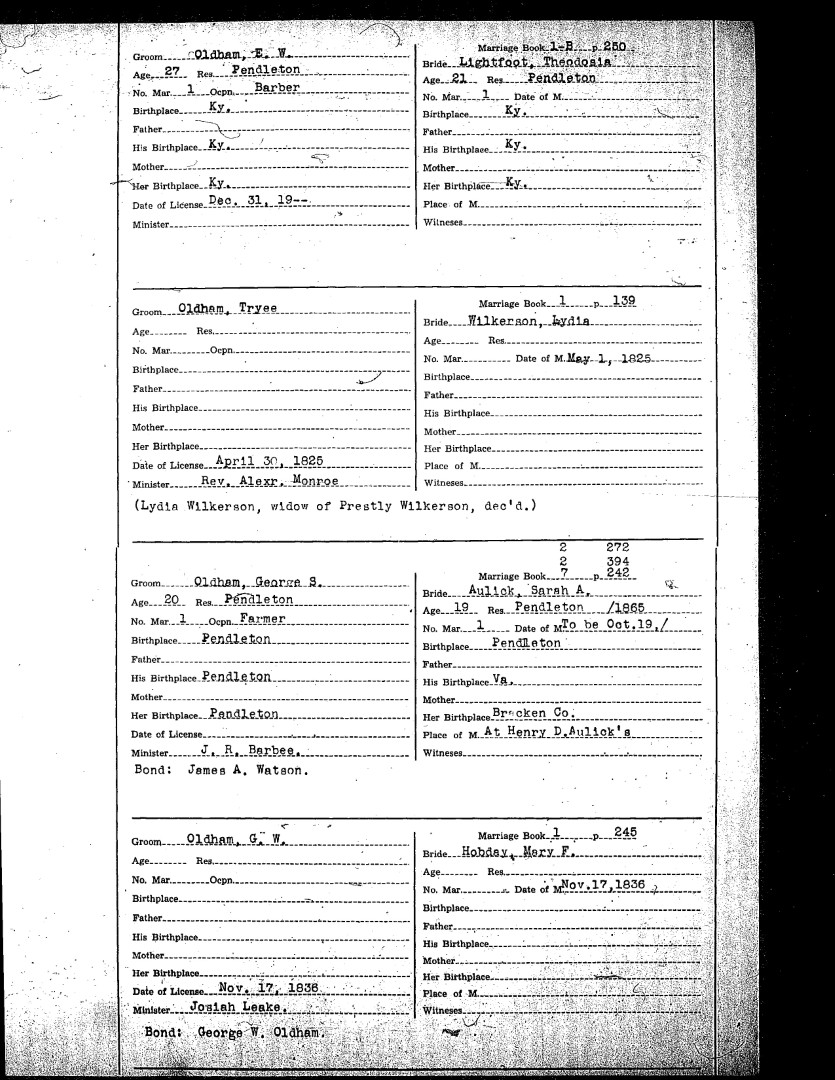 Groom Oldham, E. W.
Age 27 Res. Pendleton
No. Mar. 1 Ocpn. Barber
Birthplace Ky.
Father
His Birthplace Ky.
Mother
Her Birthplace Ky.
Date of License Dec. 31, 19--
Minister
Marriage Book 1-B p. 250
Bride Lightfoot, Theodosia
Age 21 Res. Pendleton
No. Mar. 1 Date of M.
Birthplace Ky.
Father
His Birthplace Ky.
Mother
Her Birthplace Ky.
Place of M.
Witneses
Groom Oldham, Tryee
Age Res.
No. Mar. Ocpn.
Birthplace
Father
His Birthplace
Mother
Her Birthplace
Date of License April 30, 1825
Minister Rev. Alexr. Monroe
Marriage Book 1 p. 139
Bride Wilkerson, Lydia
Age Res.
No. Mar. Date of M. May 1, 1825
Birthplace
Father
His Birthplace
Mother
Her Birthplace
Place of M.
Witneses
(Lydia Wilkerson, widow of Prestly Wilkerson, dec'd.)
Groom Oldham, George S.
Age 20 Res. Pendleton
No. Mar. 1 Ocpn. Farmer
Birthplace Pendleton
Father
His Birthplace Pendleton
Mother
Her Birthplace Pendleton
Date of License
Minister J. R. Barbee.
Bond: James A. Watson.
2 272
2 394
Marriage Book 7 p. 242
Bride Aulick, Sarah A.
Age 19 Res. Pendleton /1865
No. Mar. 1 Date of M. To be Oct.19,/
Birthplace Pendleton
Father
His Birthplace Va.
Mother
Her Birthplace Bracken Co.
Place of M. At Henry D.Aulick's
Witneses
Groom Oldham, G. W.
Age Res.
No. Mar. Ocpn.
Birthplace
Father
His Birthplace
Mother
Her Birthplace
Date of License Nov. 17, 1836
Minister Josiah Leake.
Bond: George W. Oldham.
Marriage Book 1 p. 245
Bride Hobday, Mary F.
Age Res.
No. Mar. Date of M. Nov.17,1836
Birthplace
Father
His Birthplace
Mother
Her Birthplace
Place of M.
Witneses